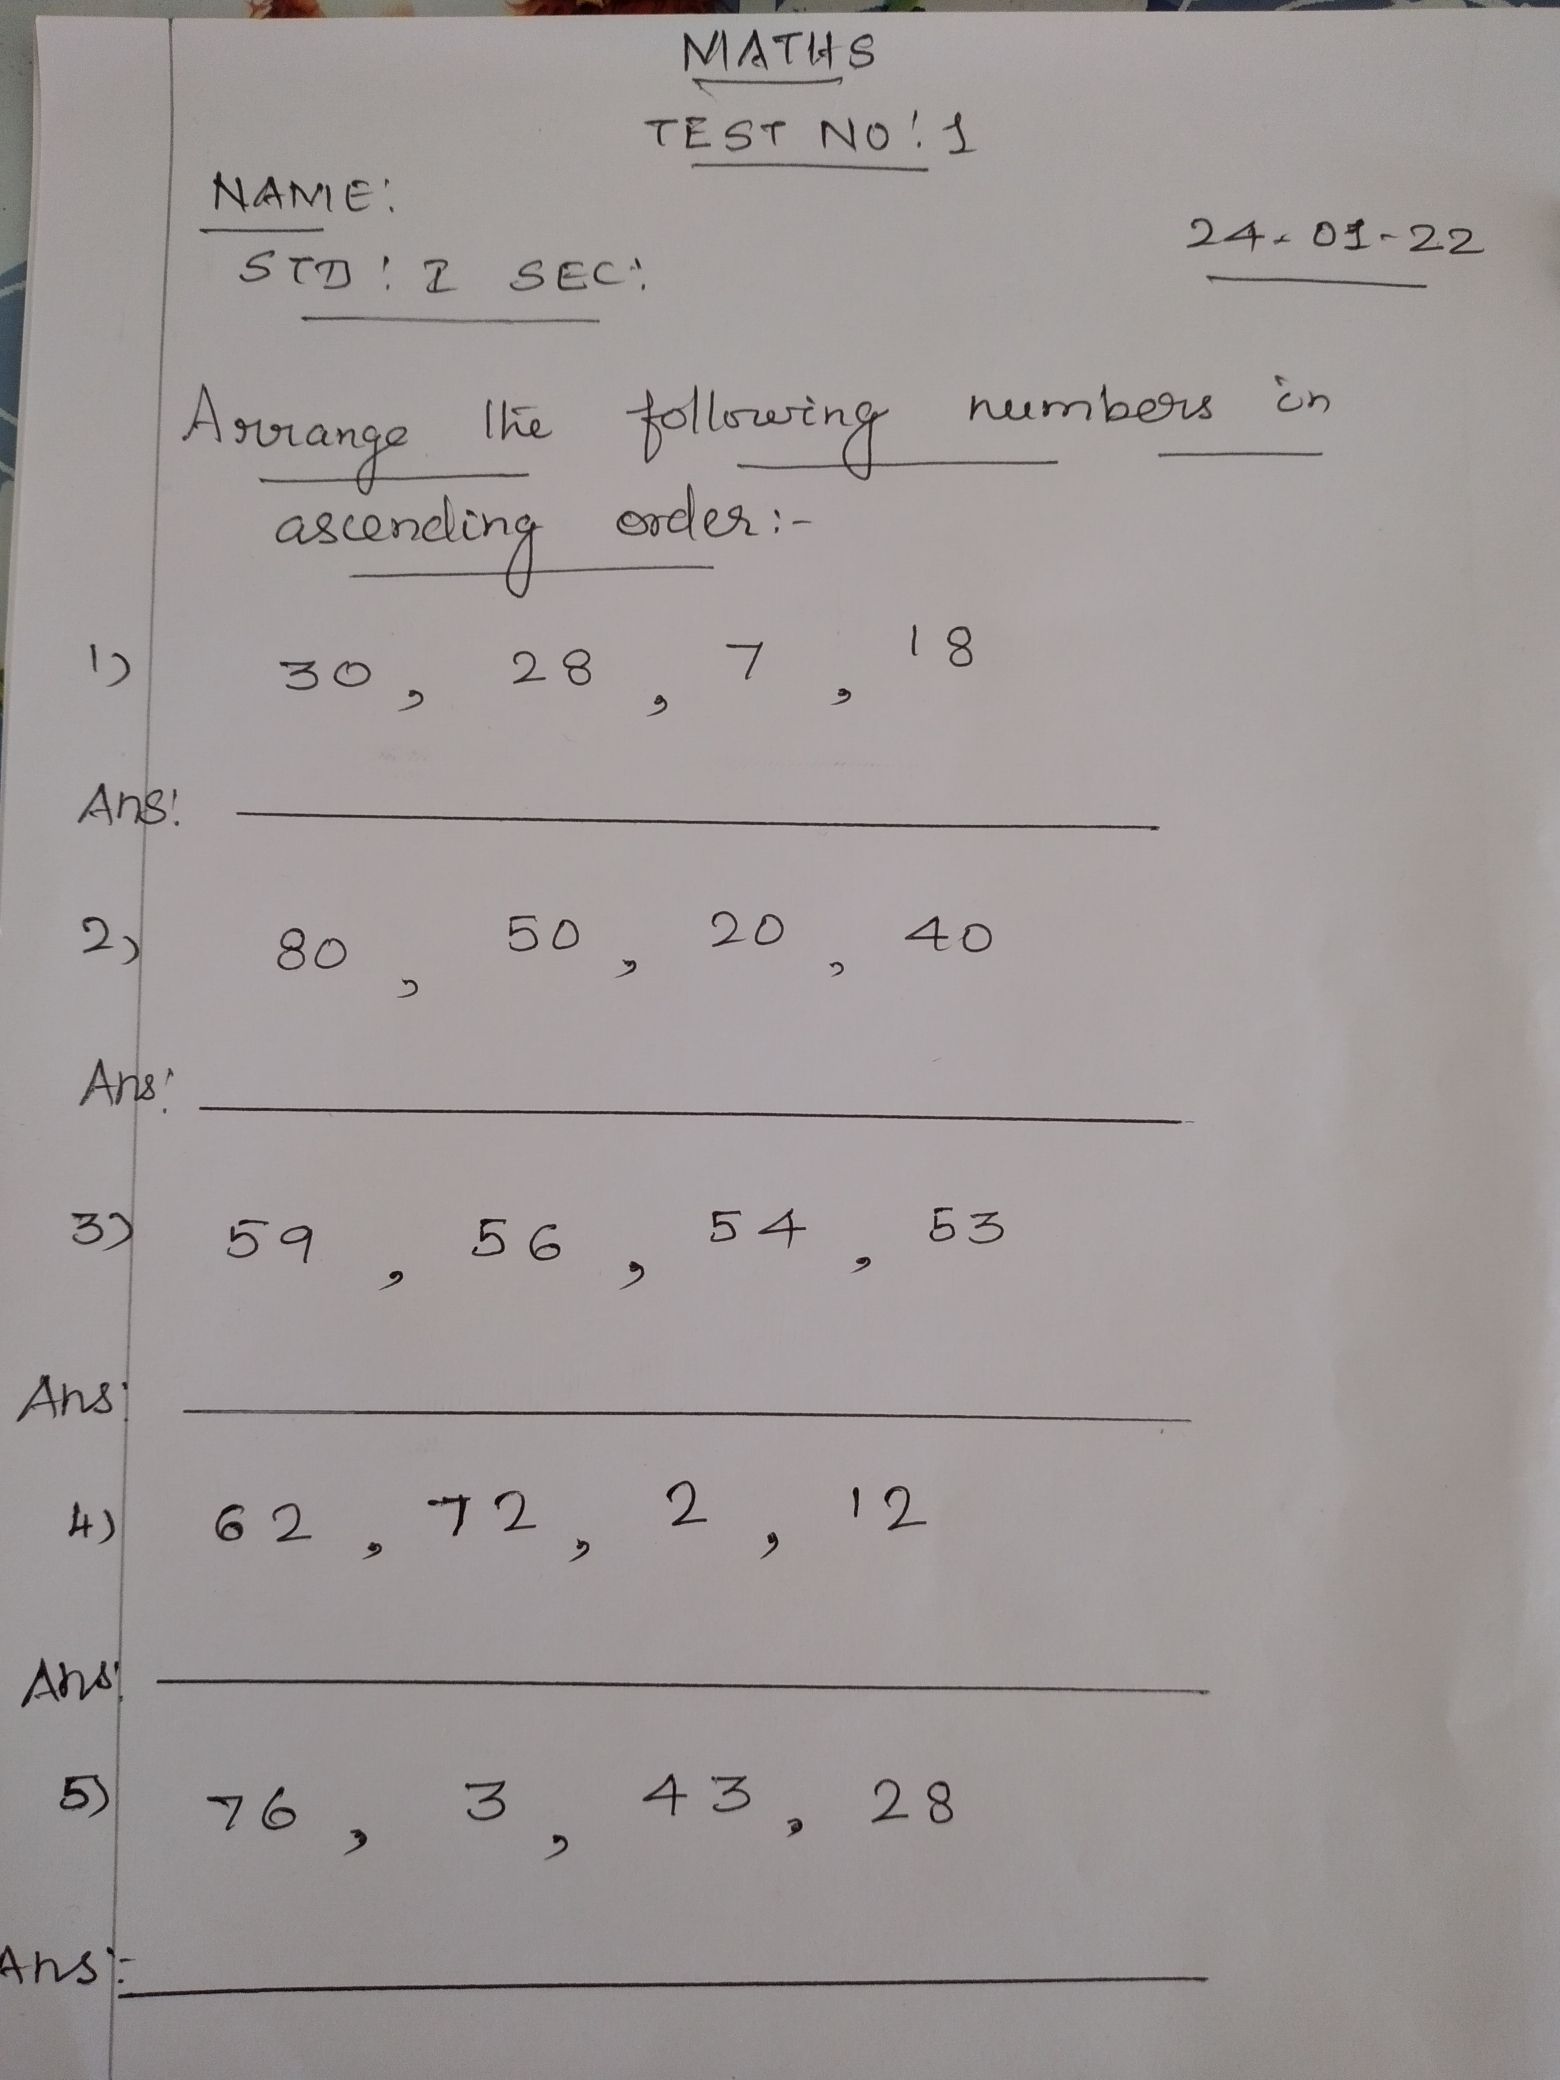 MATHS
TEST NO: 1
NAME:
24-01-22
STD: I SEC:
Arrange the following numbers in
ascending order:-
1) 30, 28, 7, 18
Ans:
2) 80, 50, 20, 40
Ans:
3) 59, 56, 54, 53
Ans:
4) 62, 72, 2, 12
Ans:
5) 76, 3, 43, 28
Ans:-